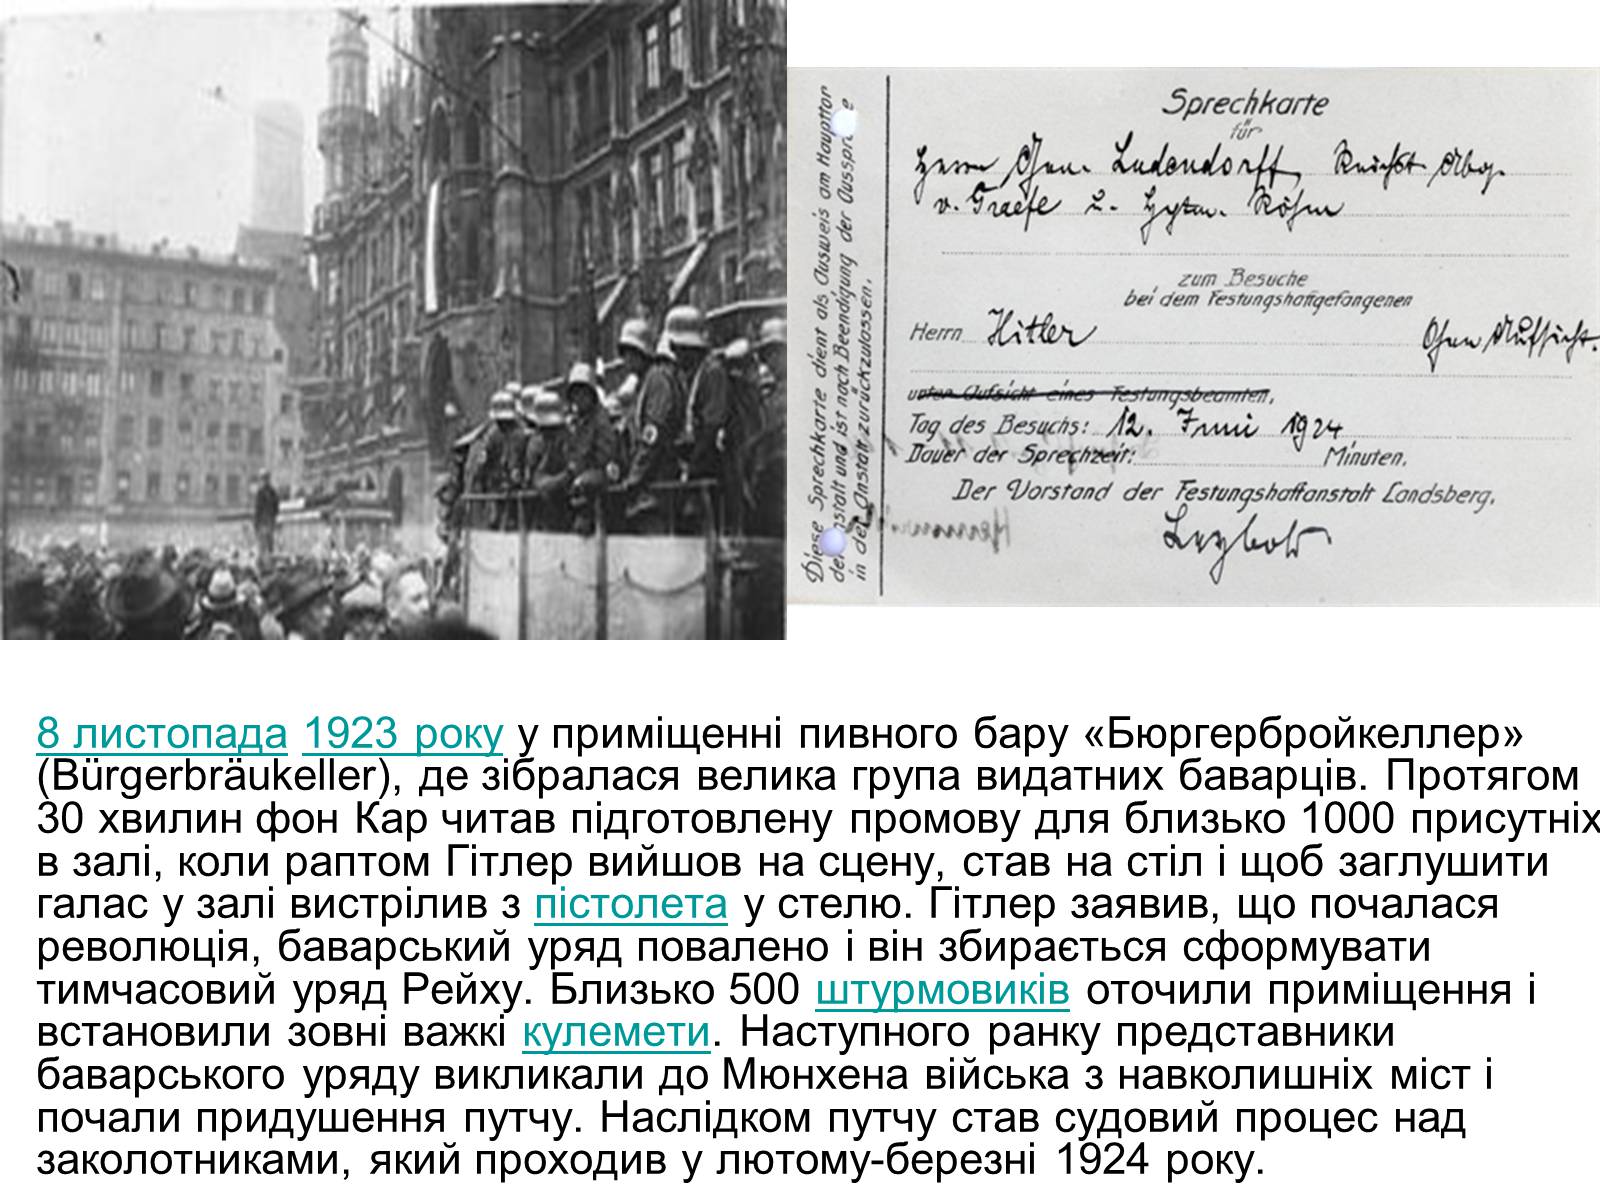 Sprechkarte
für
Herrn Gen. Ludendorff, Reichst. Abg.
v. Graefe u. Hptm. Röhm
zum Besuche
bei dem Festungshaftgefangenen
Herrn Hitler
Ohne Aufsicht.
unter Aufsicht eines Festungsbeamten,
Tag des Besuchs: 12. Juni 1924
Dauer der Sprechzeit: Minuten.
Der Vorstand der Festungshaftanstalt Landsberg.
Diese Sprechkarte dient als Ausweis am Haupttor
der Anstalt und ist nach Beendigung der Aussprache
in der Anstalt zurückzulassen.
8 листопада 1923 року у приміщенні пивного бару «Бюргербройкеллер»
(Bürgerbräukeller), де зібралася велика група видатних баварців. Протягом
30 хвилин фон Кар читав підготовлену промову для близько 1000 присутніх
в залі, коли раптом Гітлер вийшов на сцену, став на стіл і щоб заглушити
галас у залі вистрілив з пістолета у стелю. Гітлер заявив, що почалася
революція, баварський уряд повалено і він збирається сформувати
тимчасовий уряд Рейху. Близько 500 штурмовиків оточили приміщення і
встановили зовні важкі кулемети. Наступного ранку представники
баварського уряду викликали до Мюнхена війська з навколишніх міст і
почали придушення путчу. Наслідком путчу став судовий процес над
заколотниками, який проходив у лютому-березні 1924 року.